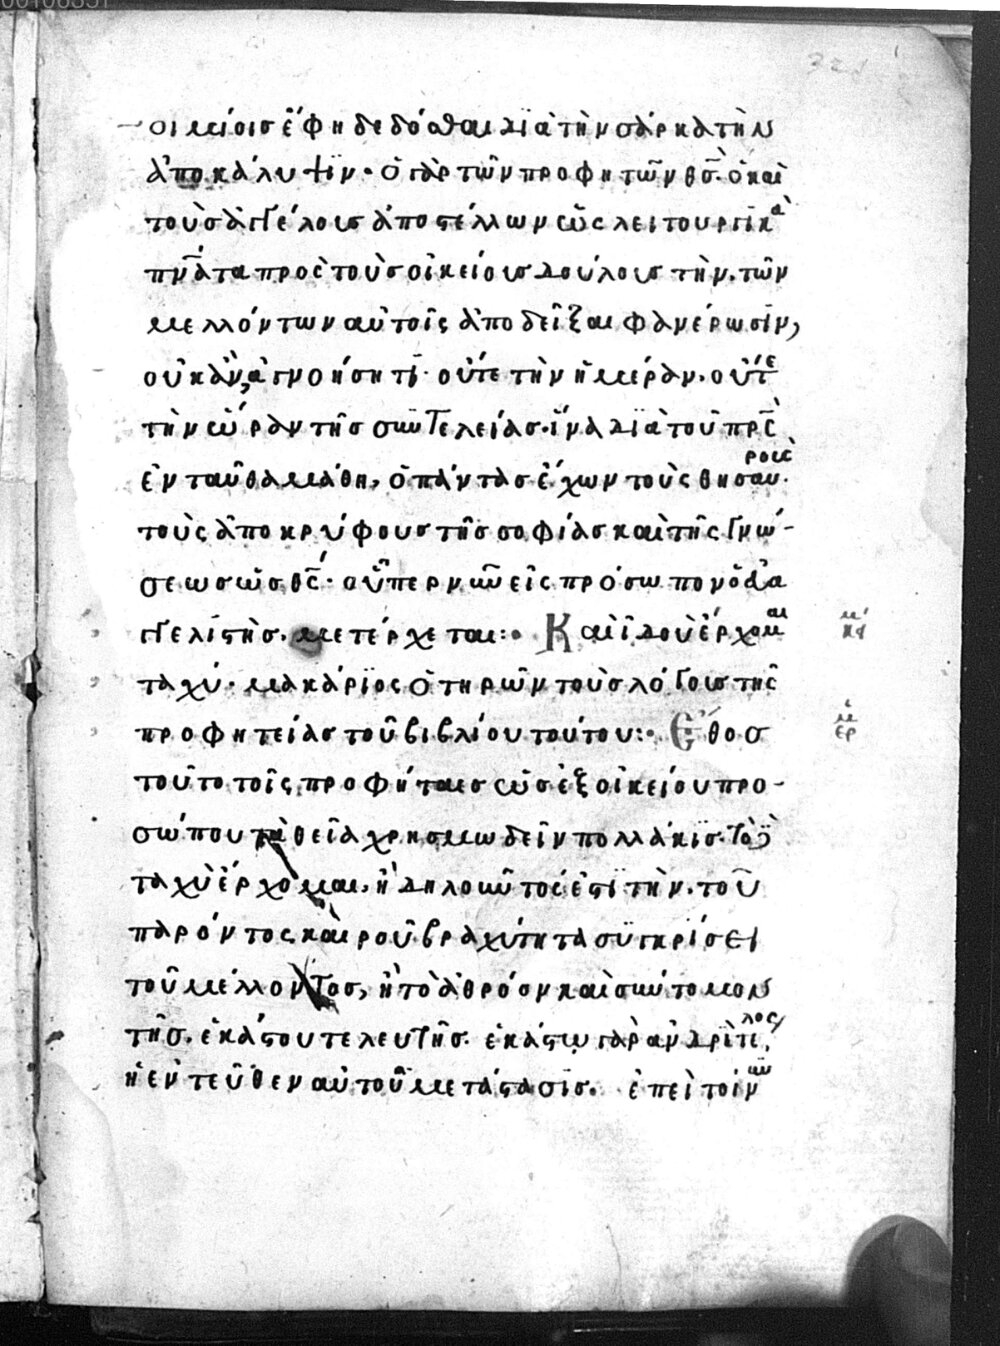 οιμίοισ ἔφη δεδόσθαι διὰ τὴν σάρκα τὴν
ἀποκάλυψϊν· ὁ γὰρ τῶν προφητῶν θσ̅. ὁ καὶ
τοὺσ ἀγγέλουσ ἀποστέλλων ὡς λειτουργϊκὰ
πνά̅τα πρὸς τοὺσ οἰκείουσ δούλουσ τὴν. τῶν
μελλόντων αὐτοῖς ἀποδεῖξαι φανέρωσϊν,
οὐκ ἂν, ἀγνοήση τϊ· οὔτε τὴν ἡμέραν. οὔτε
τὴν ὥραν τῆσ συντελείασ. ἵνα διὰ τοῦ πρ̅ς
ἐνταῦθα μάθη, ὁ πάντασ ἔχων τοὺς θησαυροὺς
τοὺς ἀποκρύφουσ τῆσ σοφίασ καὶ τῆς γνώ-
σεωσ ὡσ θς̅· οὗπερ νῦν εἰς πρόσωπον ὁ εὐα
γγελϊστὴσ. μετέρχεται:· Καὶ ἰδοὺ ἔρχομαι
ταχύ· μακάρϊος ὁ τηρῶν τοὺσ λόγουσ τῆς
προφητείασ τοῦ βιβλίου τούτου:· Ἔθοσ
τοῦτο τοῖς προφήταισ ὡσ ἐξ οἰκείου προ-
σώπου τὰ θεῖα χρησμωδεῖν πολλάκϊσ. τὸ δὲ
ταχὺ ἔρχομαι, ἢ δηλοῦντός ἐστϊ τὴν. τοῦ
παρόντος καιροῦ βραχύτητα συγκρίσει
τοῦ μέλλοντοσ, ἢ τὸ ἀθρόον καὶ σύντομον
τῆσ. ἑκάστου τελευτῆσ. ἑκάστω γὰρ ἀνδρὶ τέλος,
ἡ ἐντεῦθεν αὐτοῦ μετάστασϊσ. ἐπεὶ τοίνυν